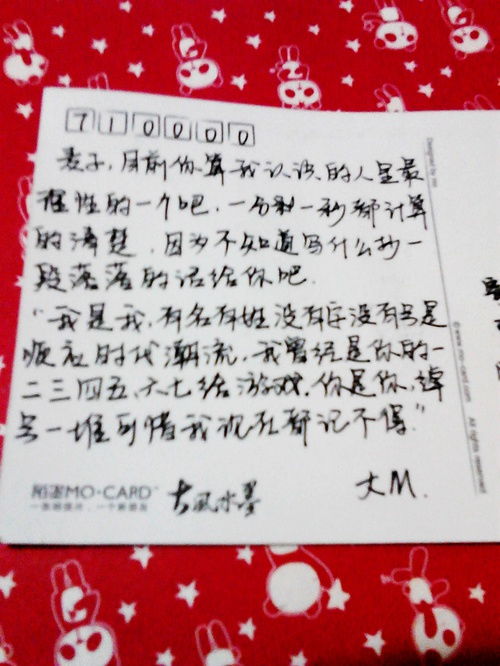 710000
麦子,目前你算我认识的人里最
理性的一个吧.一分割一秒都计算
的清楚.因为不知道写什么抄一
段落落的话给你吧.
"我是我,有名有姓没有字没有号是
顺应时代潮流,我曾经是你的一
二三四五六七给游戏.你是你,绰
号一堆可惜我现在都记不得."
陌客MO-CARD
大风水墨
大M.
Designed by mo
©www.mo-card.com All rights reserved